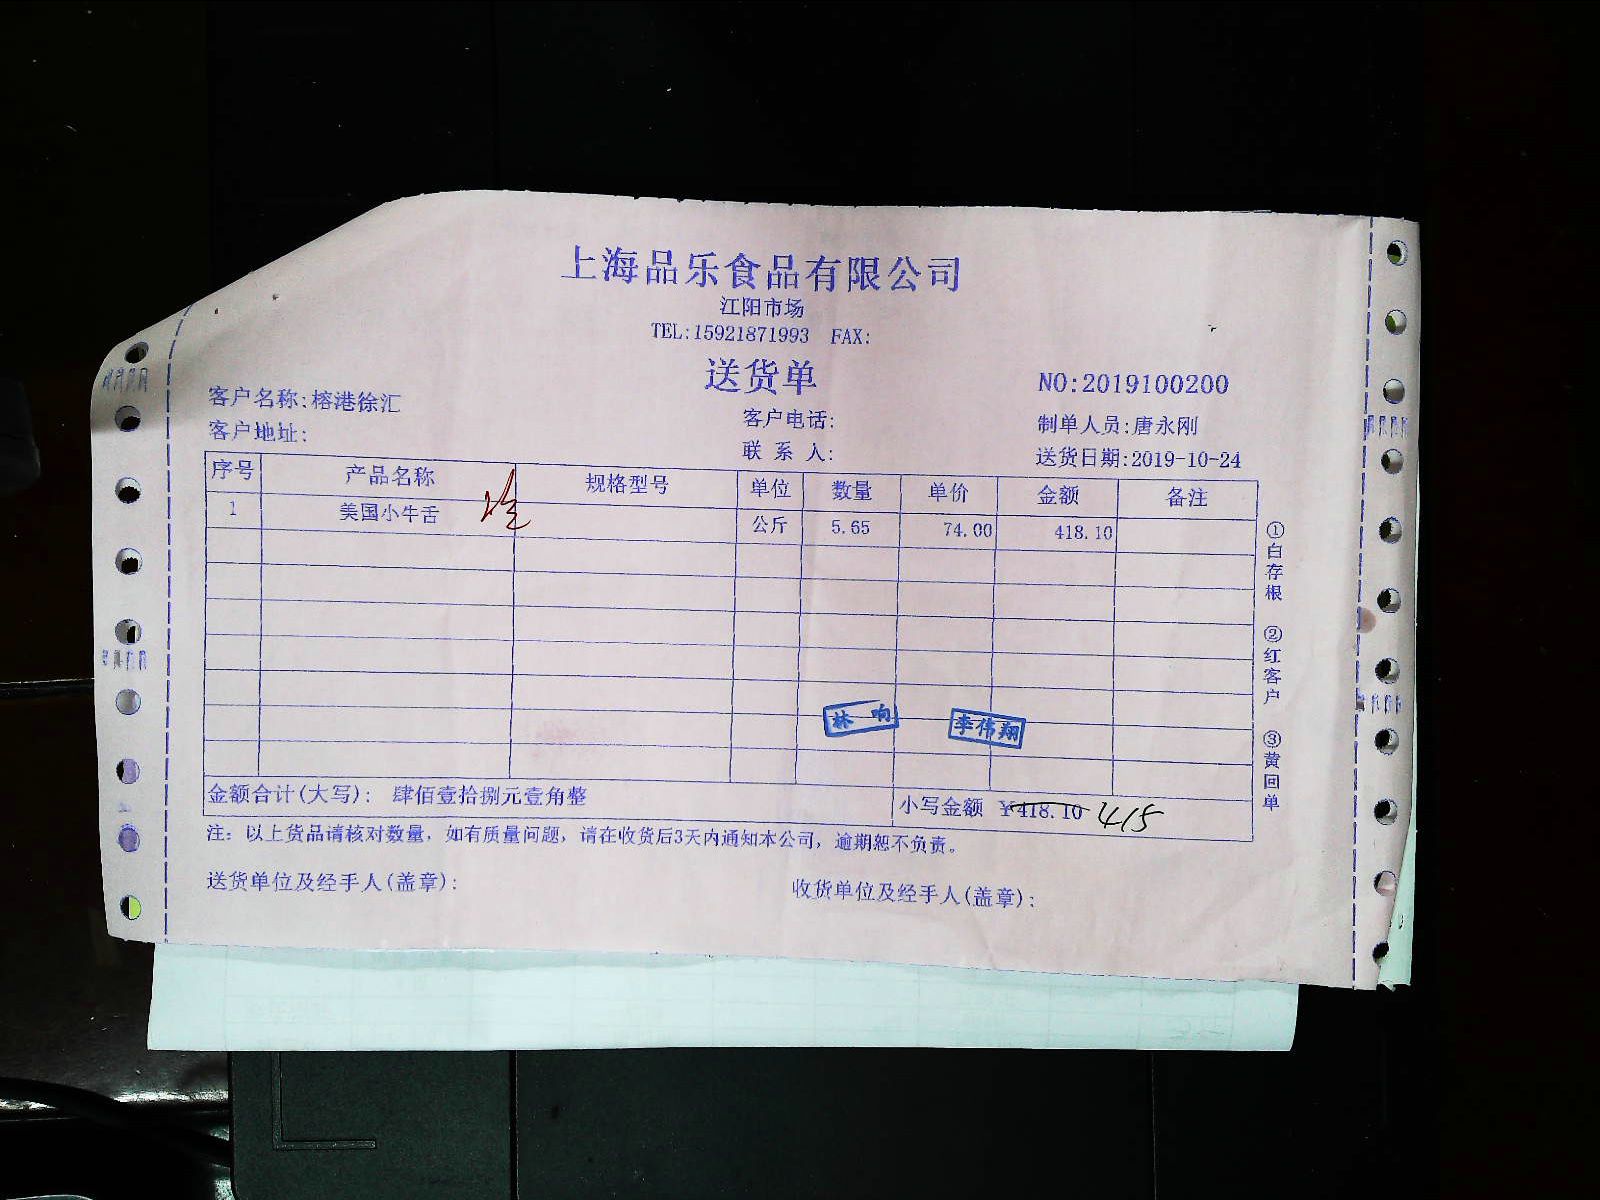 上海品乐食品有限公司
江阳市场
TEL:15921871993 FAX:
送货单
NO:2019100200
客户名称:榕港徐汇
客户电话:
制单人员:唐永刚
客户地址:
联 系 人:
送货日期:2019-10-24
序号 产品名称 规格型号 单位 数量 单价 金额 备注
1 美国小牛舌 公斤 5.65 74.00 418.10
①白存根 ②红客户 ③黄回单
林 响 李伟翔
金额合计(大写): 肆佰壹拾捌元壹角整 小写金额 ¥418.10 415
注: 以上货品请核对数量, 如有质量问题, 请在收货后3天内通知本公司, 逾期恕不负责。
送货单位及经手人(盖章): 收货单位及经手人(盖章):